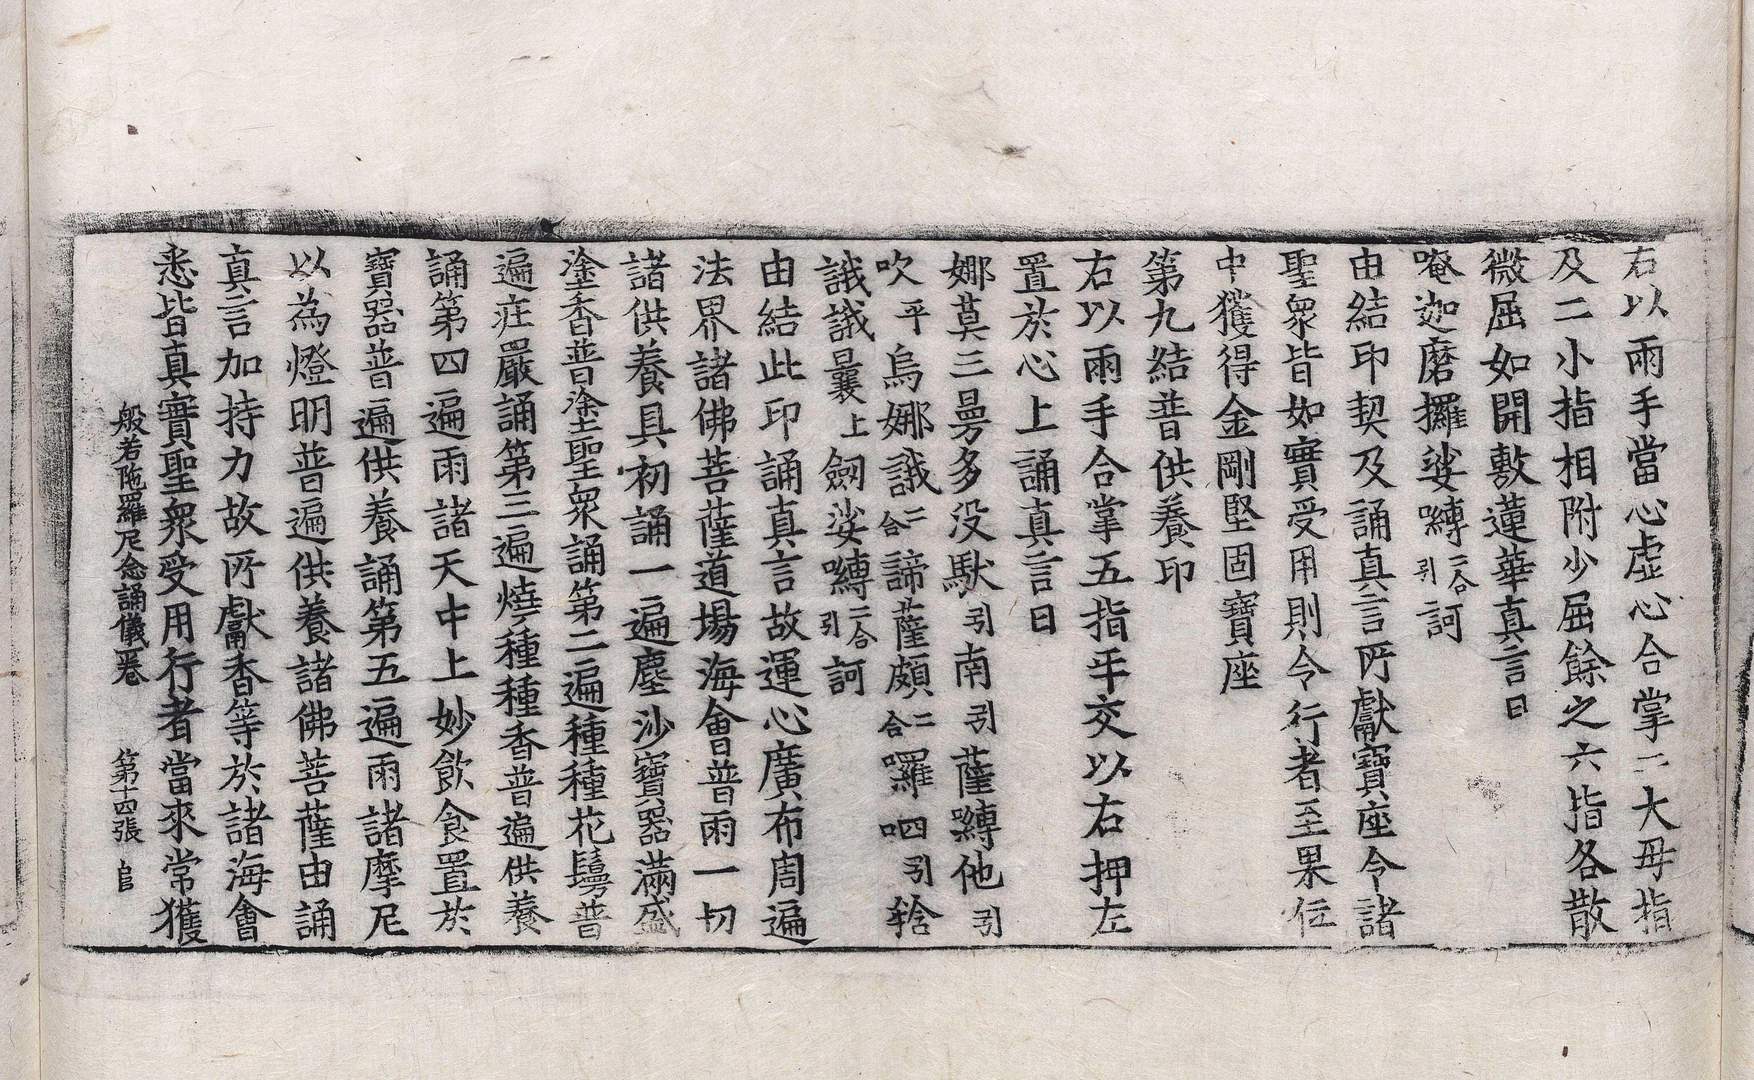 右以兩手當心虛心合掌二大母指
及二小指相附少屈餘之六指各散
微屈如開敷蓮華真言曰
唵迦磨攞娑嚩二合引訶
由結印契及誦真言所獻寶座令諸
聖衆皆如實受用則令行者至果位
中獲得金剛堅固寶座
第九結普供養印
右以兩手合掌五指平交以右押左
置於心上誦真言曰
娜莫三曼多没馱引南引薩嚩他引
吹平烏娜誐二合諦薩頗二合囉呬引䤈
誐誐曩上劒娑嚩二合引訶
由結此印誦真言故運心廣布周遍
法界諸佛菩薩道場海會普雨一切
諸供養具初誦一遍塵沙寶器滿盛
塗香普塗聖衆誦第二遍種種花鬘普
遍莊嚴誦第三遍燒種種香普遍供養
誦第四遍雨諸天中上妙飲食置於
寶器普遍供養誦第五遍雨諸摩尼
以為燈明普遍供養諸佛菩薩由誦
真言加持力故所獻香等於諸海會
悉皆真實聖衆受用行者當來常獲
般若陁羅尼念誦儀一卷 第十四張 官